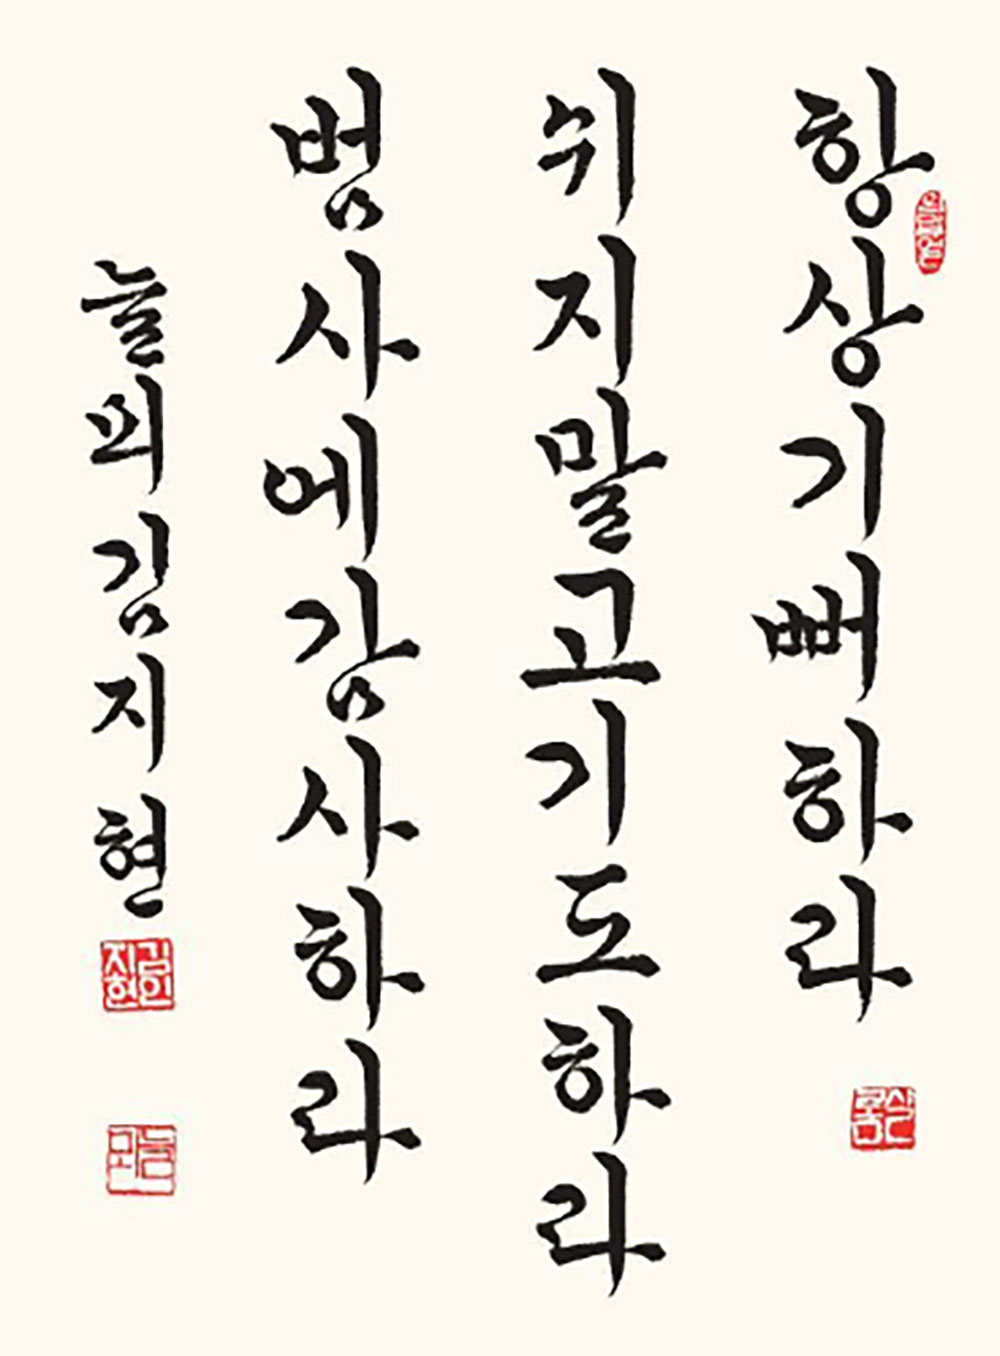 항상기뻐하라
쉬지말고기도하라
범사에감사하라
늘뫼김지현
김지현인
늘뫼